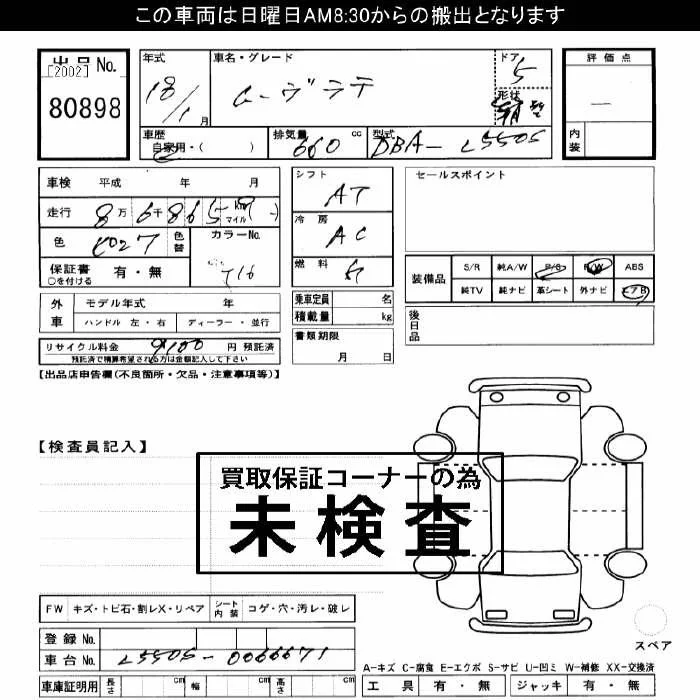 この車両は日曜日AM8:30からの搬出となります
出品No.
[2002]
80898
年式
18/1月
車名・グレード
ムーヴラテ
ドア
5
形状
評価点
内装
車歴
自家用・( )
排気量
660 cc
型式
DBA-L550S
車検 平成 年 月
走行 8万6千865 km マイル
色
色替
カラーNo.
T16
保証書
○を付ける
有・無
シフト
AT
冷房
AC
燃料
ガ
セールスポイント
装備品
S/R 純A/W P/S P/W ABS
純TV 純ナビ 革シート 外ナビ エアB
外車
モデル年式 年
ハンドル 左・右 ディーラー・並行
乗車定員 名
積載量 kg
後日品
リサイクル料金 9100 円 預託済
預託済で精算希望される方は金額記入して下さい
書類期限
月 日
【出品店申告欄(不良箇所・欠品・注意事項等)】
【検査員記入】
買取保証コーナーの為
未検査
FW キズ・トビ石・割レX・リペア シート内装 コゲ・穴・汚レ・破レ
登録No.
車台No. L550S-0066671
スペア
A-キズ C-腐食 E-エクボ S-サビ U-凹ミ W-補修 XX-交換済
車庫証明用 長さ cm 幅 cm 高さ cm
工具 有・無 ジャッキ 有・無